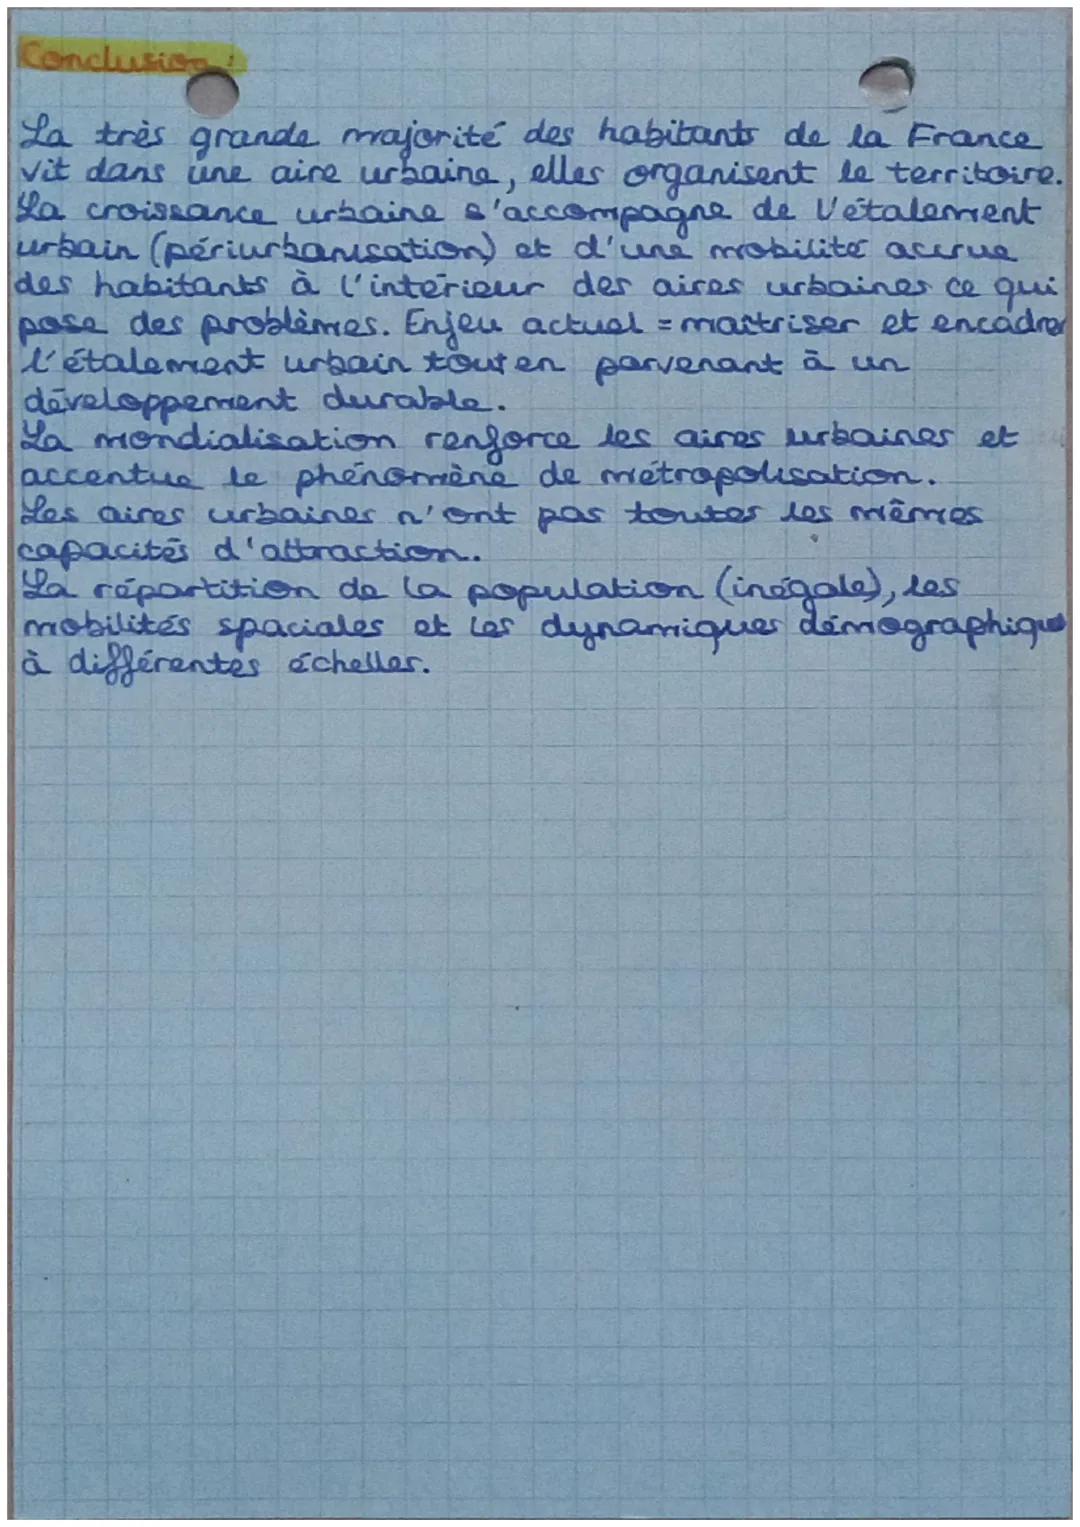 Conclusion :
La très grande majorité des habitants de la France
vit dans une aire urbaine, elles organisent le territoire.
La croissance urbaine s'accompagne de l'étalement
urbain (périurbanisation) et d'une mobilité accrue
des habitants à l'intérieur des aires urbaines ce qui
pose des problèmes. Enjeu actuel = maîtriser et encadrer
l'étalement urbain tout en parvenant à un
développement durable.
La mondialisation renforce les aires urbaines et
accentue le phénomène de métropolisation.
Les aires urbaines n'ont pas toutes les mêmes
capacités d'attraction.
La répartition de la population (inégale), les
mobilités spaciales et les dynamiques démographiques
à différentes échelles.